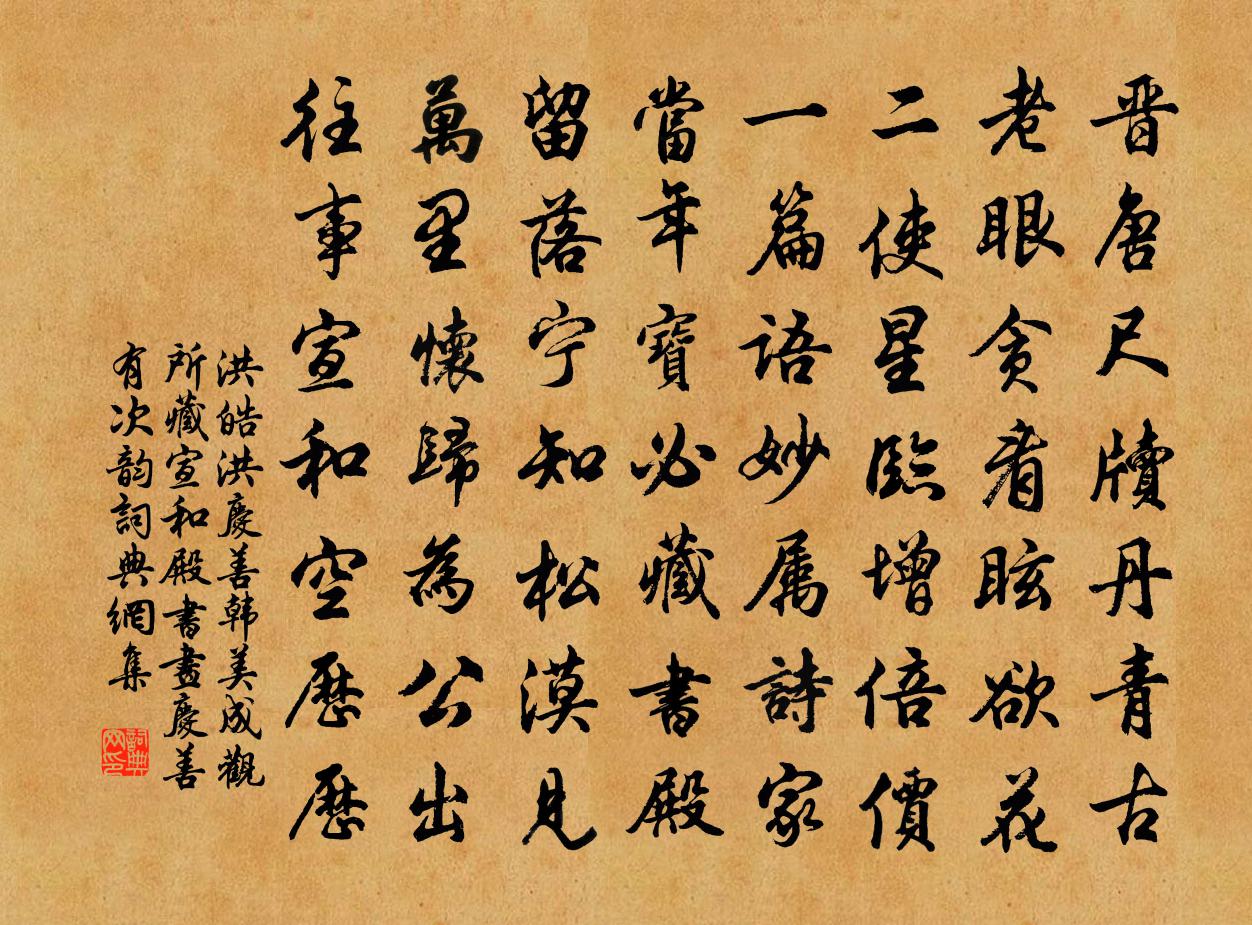 晋唐尺牘丹青古
老眼貪看眩欲花
二使星臨增倍價
一篇語妙属詩家
當年寶必藏書殿
留落宁知松漠見
萬里懷歸為公出
往事宣和空歷歷
洪皓洪慶善韩美成觀
所藏宣和殿書畫慶善
有次韵詞典網集
詞典网印